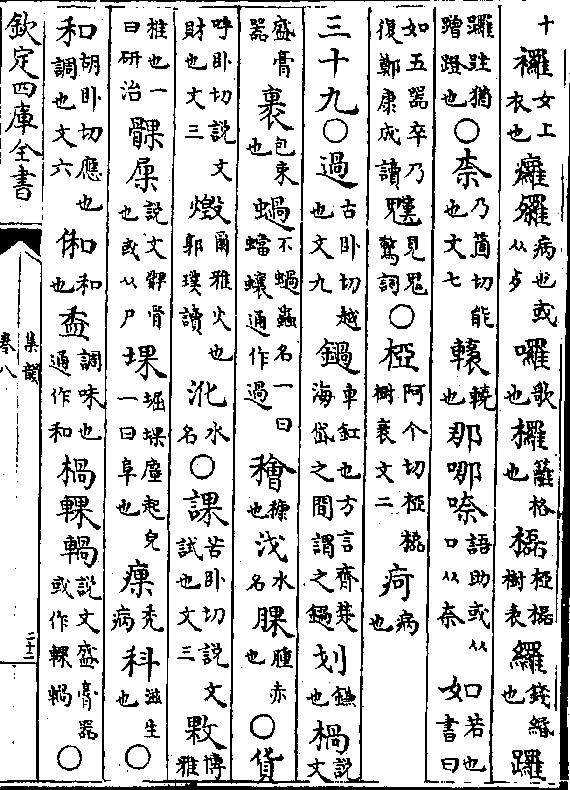 十𧟌女上衣也㿚𣩽病也或从歹囉歌也欏籬格也橠椏橠樹衰纙錢緡也𨇽
𨇽跬猶蹭蹬也○柰乃箇切能也文七轅也那哪㖠語助或从口从奈如若也書曰
如五器卒乃復鄭康成讀見鬼驚詞○椏阿个切椏橠樹衰文二疴病也
三十九○過古卧切越也文九鍋車釭也方言齊楚海岱之間謂之鍋划鎌也楇説文
盛膏器裹包束也蝸不蝸蟲名一曰蟷蠰通作過穭穅也水名腂腫赤也○貨
呼卧切説文財也文三爾雅火也郭璞讀沎水名○課苦卧切説文試也文三敤博雅
椎也一曰研治髁𡱼説文髀骨也或从尸堁堀堁塵起皃一曰阜也㾧禿病科滋生也○
和胡卧切應也調也文六俰和也盉調味也通作和楇輠説文盛膏器或作輠○
欽定四庫全書
集韻
卷八